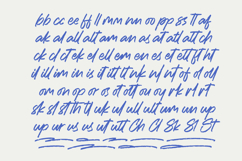 bb cc ee ff ll mm nn oo pp ss tt af
ak al all alt am an as at atl att ch
ck cl ct ek el ell em en es et ett ft ht
id ill im in is it itt lt nk nl nt of ol oll
om on op or os ot ott ou oy rk rl rt
sk sl st th tl uk ul ull ult um un up
up ur us us ut utt Ch Cl Sk Sl St